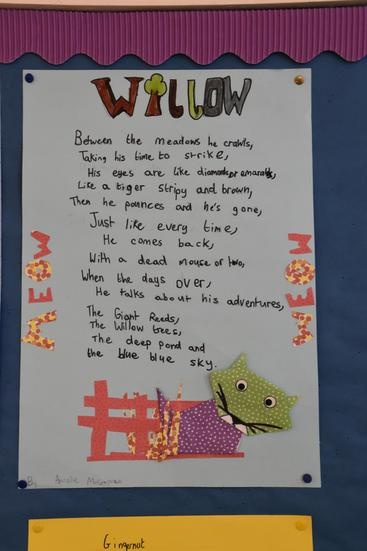 WILLOW
Between the meadows he crawls,
Taking his time to strike,
His eyes are like diamonds or emeralds,
Like a tiger stripy and brown,
Then he pounces and he's gone,
Just like every time,
He comes back,
With a dead mouse or two,
When the days over,
He talks about his adventures,
The Giant Reeds,
The Willow trees,
The deep pond and
the blue blue sky.
MEOW
MEOW
By
Gingernut